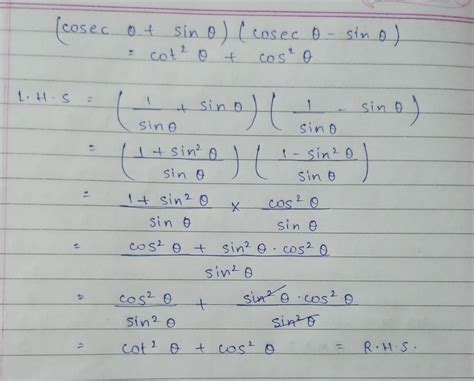 (cosec θ + sin θ) (cosec θ - sin θ)
= cot² θ + cos² θ
L.H.S = (1/sinθ + sin θ) (1/sinθ - sin θ)
= (1 + sin² θ/sin θ) (1 - sin² θ/sin θ)
= 1 + sin² θ/sin θ × cos² θ/sin θ
= cos² θ + sin² θ · cos² θ/sin² θ
= cos² θ/sin² θ + sin² θ · cos² θ/sin² θ
= cot² θ + cos² θ = R.H.S.